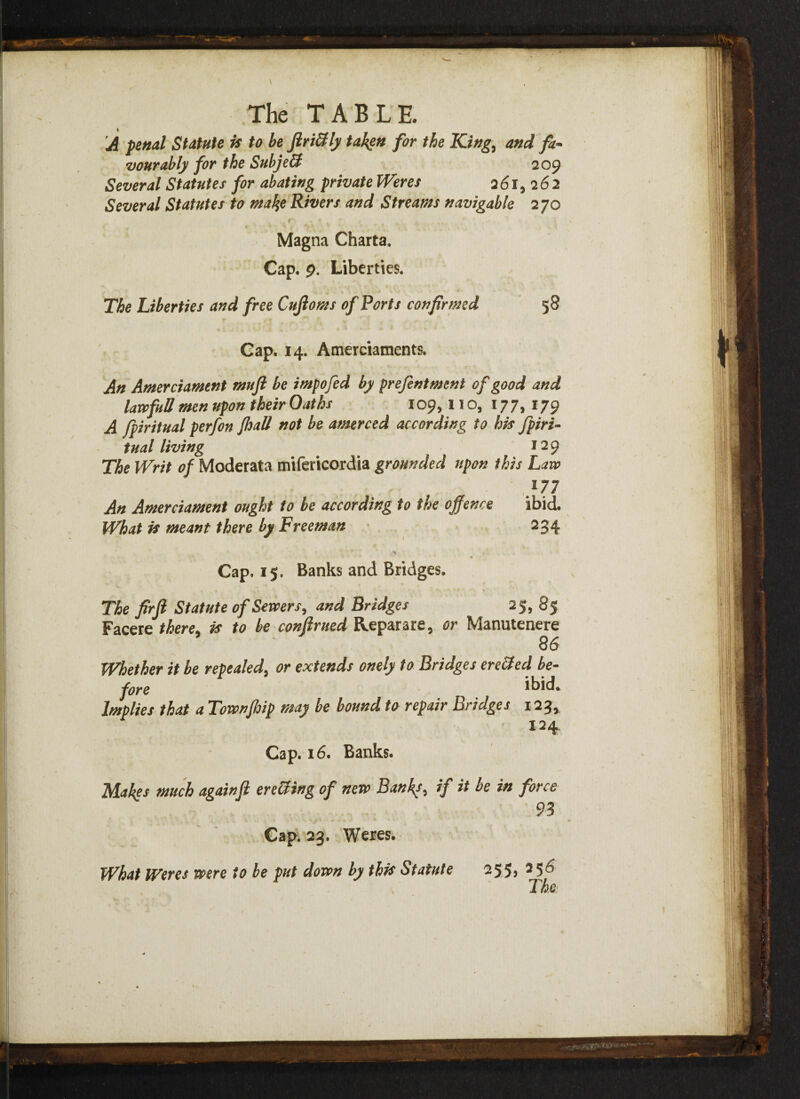 The TABLE.
A penal Statute is to be ſtrictly taken for the King, and fa-
vourably for the Subject 209
Several Statutes for abating private Weres 261, 262
Several Statutes to make Rivers and Streams navigable 270
Magna Charta.
Cap. 9. Liberties.
The Liberties and free Cuſtoms of Ports confirmed 58
Cap. 14. Amerciaments.
An Amerciament muſt be impoſed by preſentment of good and
lawfull men upon their Oaths 109, 110, 177, 179
A ſpiritual perſon ſhall not be amerced according to his ſpiri-
tual living 129
The Writ of Moderata miſericordia grounded upon this Law
177
An Amerciament ought to be according to the offence ibid.
What is meant there by Freeman 234
Cap. 15. Banks and Bridges.
The firſt Statute of Sewers, and Bridges 25, 85
Facere there, is to be conſtrued Reparare, or Manutenere
86
Whether it be repealed, or extends onely to Bridges erected be-
fore ibid.
Implies that a Townſhip may be bound to repair Bridges 123,
124
Cap. 16. Banks.
Makes much againſt erecting of new Banks, if it be in force
93
Cap. 23. Weres.
What Weres were to be put down by this Statute 255, 256
The